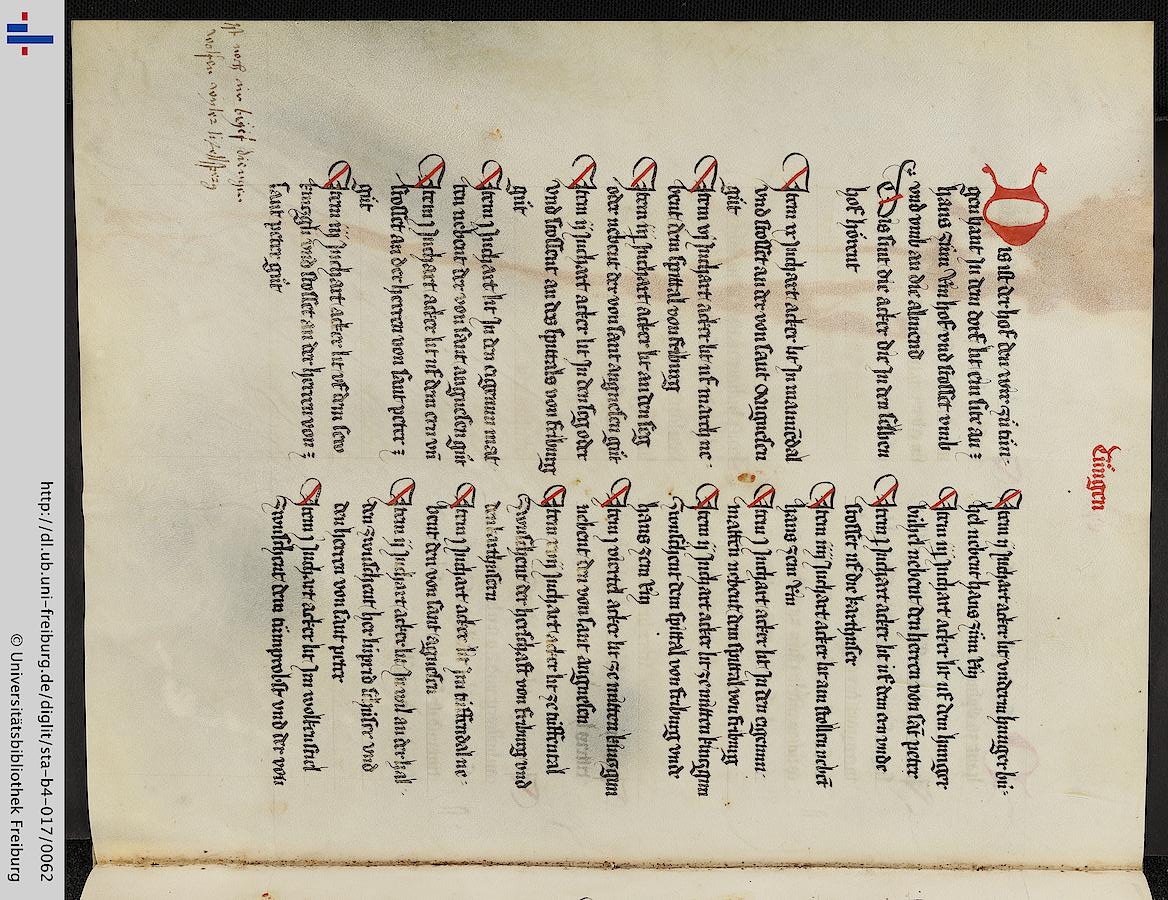 Tüngen
Dis ist der hof den wir zü tün-
gen hant In dem dorf lit ein site an
hans zimi kin hof vnd stosset vnd
vnd vmb an die almend
Dis sint die acker die In den selben
hof hörent
Item ix Juchart acker lit In
vnd stosset an der von sant Angnesen
güt
Item vj Juchart acker lit uf march ne-
bent dem spittal von friburg
Item iij Juchart acker lit an den seg
oder nebent der von sant angnesen güt
Item ij Juchart acker lit In den seg oder
vnd stossent an des spittals von friburg
güt
Item j Juchart lit In den eigenun mat
ten nebent der von sant angnesen güt
Item j Juchart acker lit uf dem
stosset an der herren von sant peter
güt
Item iij Juchart acker lit vf dem
vnd stosset an der herren von
sant peter güt
Item ij Juchart acker lit vnderm hunger bü-
hel nebent hans zimi kin
Item iij Juchart acker lit uf dem hunger
bühel nebent den herren von sant peter
Item j Juchart acker lit uf den
stosset uf die karthuser
Item iiij Juchart acker lit am stollen nebent
hans zem kin
Item j Juchart acker lit In den eigenun
matten nebent dem spittal von friburg
Item ij Juchart acker lit ze mitten
zwüschent dem spittal von friburg vnd
hans zem kin
Item j viertel acker lit ze mitten
nebent den von sant angnesen
Item Juchart acker lit ze tiffental
zwüschent der herschaft von friburg vnd
den karthusern
Item j Juchart acker lit im tiffendal ne-
bent den von sant agnesen
Item ij Juchart acker lit In wil an der hal-
den zwüschent her vnd
den herren von sant peter
Item j Juchart acker lit Im
zwüschent dem tümprobst vnd der von
http://dl.ub.uni-freiburg.de/diglit/sta-b4-017/0062
© Universitätsbibliothek Freiburg